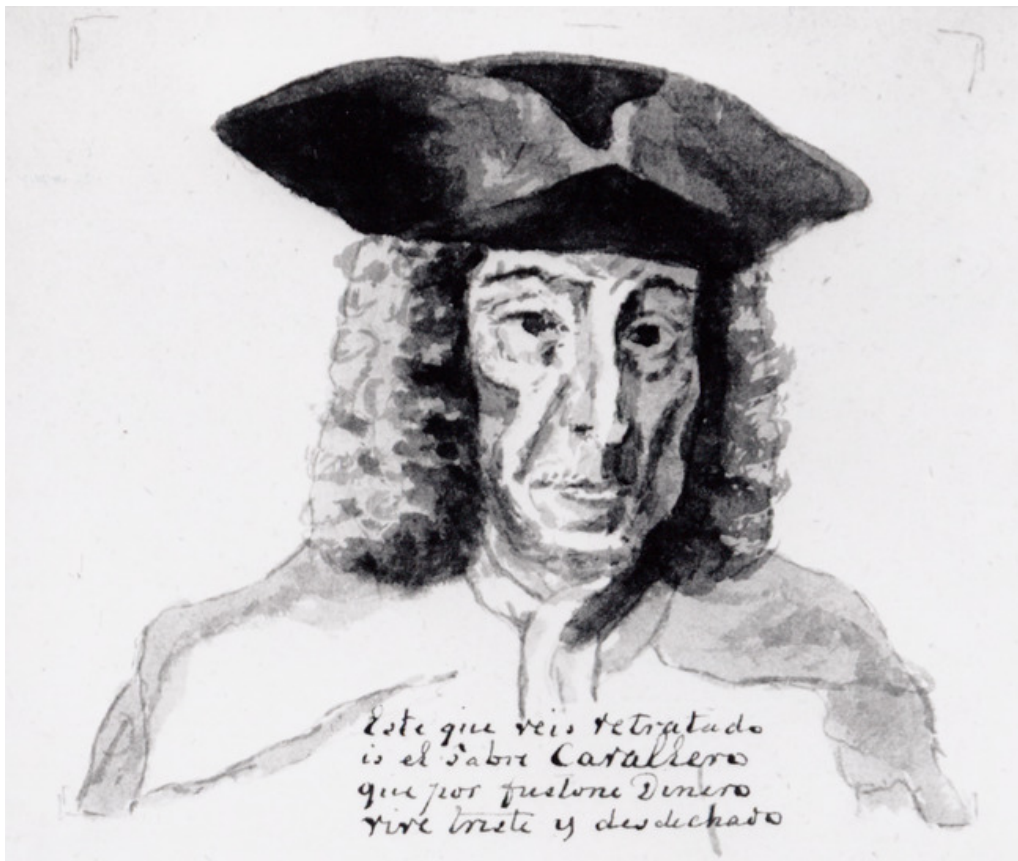 Este que veis retratado
is el Sabri Cavallero
que por Dinero
vive triste y desdechado